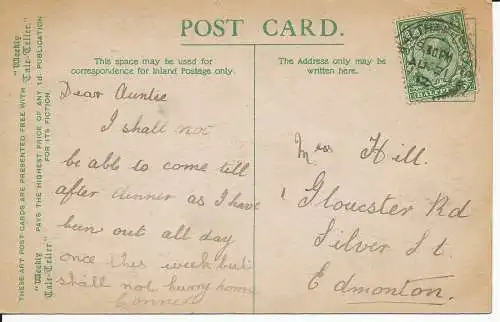 POST CARD.
This space may be used for
correspondence for Inland Postage only.
The Address only may be
written here.
"Weekly Tale-Teller"
THESE ART POST CARDS ARE PRESENTED FREE WITH "Weekly Tale-Teller"
"Weekly Tale-Teller" PAYS THE HIGHEST PRICE OF ANY 1d. PUBLICATION
FOR ITS FICTION.
Dear Auntie
I shall not
be able to come till
after dinner as I have
been out all day
once this week but
shall not hurry home
Connie
Miss Hill.
1 Gloucester Rd
Silver St
Edmonton.
HALFPENNY